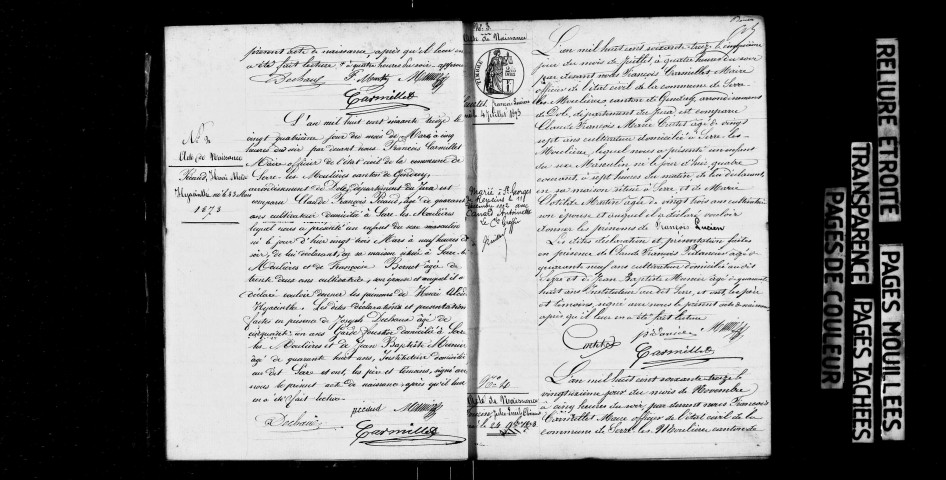 présent acte de naissance, après qu'il leur en
a été fait lecture à quatre heures du soir
Carmillet
N° 2
Acte de Naissance
Picaud, Henri Alcide
Hyacinthe né le 23 Mars
1873
L'an mil huit cent soixante treize le
vingt quatrième jour du mois de Mars à cinq
heures du soir par devant nous François Carmillet
Maire officier de l'état civil de la commune de
Serre-les-Moulières canton de Gendrey,
arrondissement de Dole, département du Jura est
comparu Claude François Picaud, âgé de quarante
ans cultivateur domicilié à Serre-les-Moulières
lequel nous a présenté un enfant du sexe masculin
né le jour d'hier vingt trois Mars à neuf heures du
soir, de lui déclarant, en sa maison située à Serre-les-
Moulières et de Françoise Bonnet âgée de
trente deux ans cultivatrice, son épouse et auquel il a
déclaré vouloir donner les prénoms de Henri Alcide
Hyacinthe. Les dites déclaration et présentation
faites en présence de Joseph Dechaux âgé de
cinquante un ans Garde forestier domicilié à Serre
les Moulières et de Jean Baptiste Monnier
âgé de quarante huit ans, Instituteur domicilié
au dit Serre et ont, les père et témoins, signé avec
nous le présent acte de naissance, après qu'il leur
en a été fait lecture
picaud
Dechaux
Carmillet
N° 3
Acte de Naissance
TIMBRE
François Lucien
né le 4 Juillet 1873
Marié à St Georges
de Reneins le
décembre 1912 avec
Antoinette
Le Cte Greffier
L'an mil huit cent soixante treize le cinquième
jour du mois de Juillet à quatre heures du soir
par devant nous François Carmillet Maire
officier de l'état civil de la commune de Serre-
les-Moulières canton de Gendrey, arrondissement
de Dole, département du Jura, est comparu
Claude François Marie Cretet âgé de vingt
sept ans cultivateur domicilié à Serre-les-
Moulières, lequel nous a présenté un enfant
du sexe Masculin né le jour d'hier quatre
courant, à sept heures du matin, de lui déclarant,
en sa maison située à Serre et de Marie
Clotilde Maitre âgée de vingt trois ans cultivatrice
son épouse et auquel il a déclaré vouloir
donner les prénoms de François Lucien
Les dites déclaration et présentation faites
en présence de Claude François âgé de
quarante neuf ans cultivateur domicilié au dit
Serre et de Jean Baptiste Monnier âgé de quarante
huit ans, Instituteur au dit Serre, et ont, les père
et témoins, signé avec nous le présent acte de naissance
après qu'il leur en a été fait lecture
Cretet
Carmillet
N° 4
Acte de Naissance
né le 24 9bre 1873
L'an mil huit cent soixante treize le
vingt jour du mois de Novembre
à cinq heures du soir, par devant nous François
Carmillet Maire officier de l'état civil de la
commune de Serre-les-Moulières canton de
RELIURE ETROITE
TRANSPARENCE
PAGES DE COULEUR
PAGES MOUILLEES
PAGES TACHEES